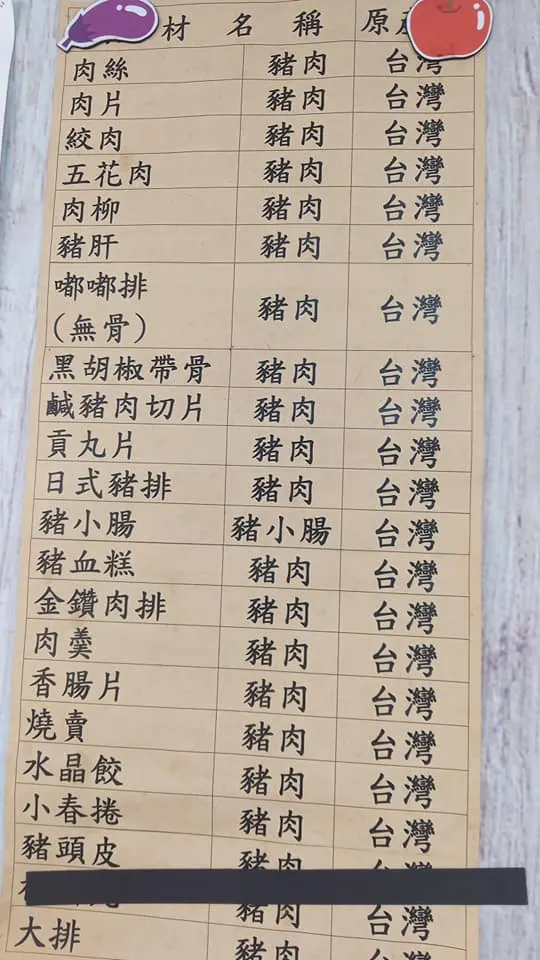 材 名 稱 原
肉絲 豬肉 台灣
肉片 豬肉 台灣
絞肉 豬肉 台灣
五花肉 豬肉 台灣
肉柳 豬肉 台灣
豬肝 豬肉 台灣
嘟嘟排
(無骨) 豬肉 台灣
黑胡椒帶骨 豬肉 台灣
鹹豬肉切片 豬肉 台灣
貢丸片 豬肉 台灣
日式豬排 豬肉 台灣
豬小腸 豬小腸 台灣
豬血糕 豬肉 台灣
金鑽肉排 豬肉 台灣
肉羹 豬肉 台灣
香腸片 豬肉 台灣
燒賣 豬肉 台灣
水晶餃 豬肉 台灣
小春捲 豬肉 台灣
豬頭皮 豬肉
豬肉 台灣
大排 豬肉